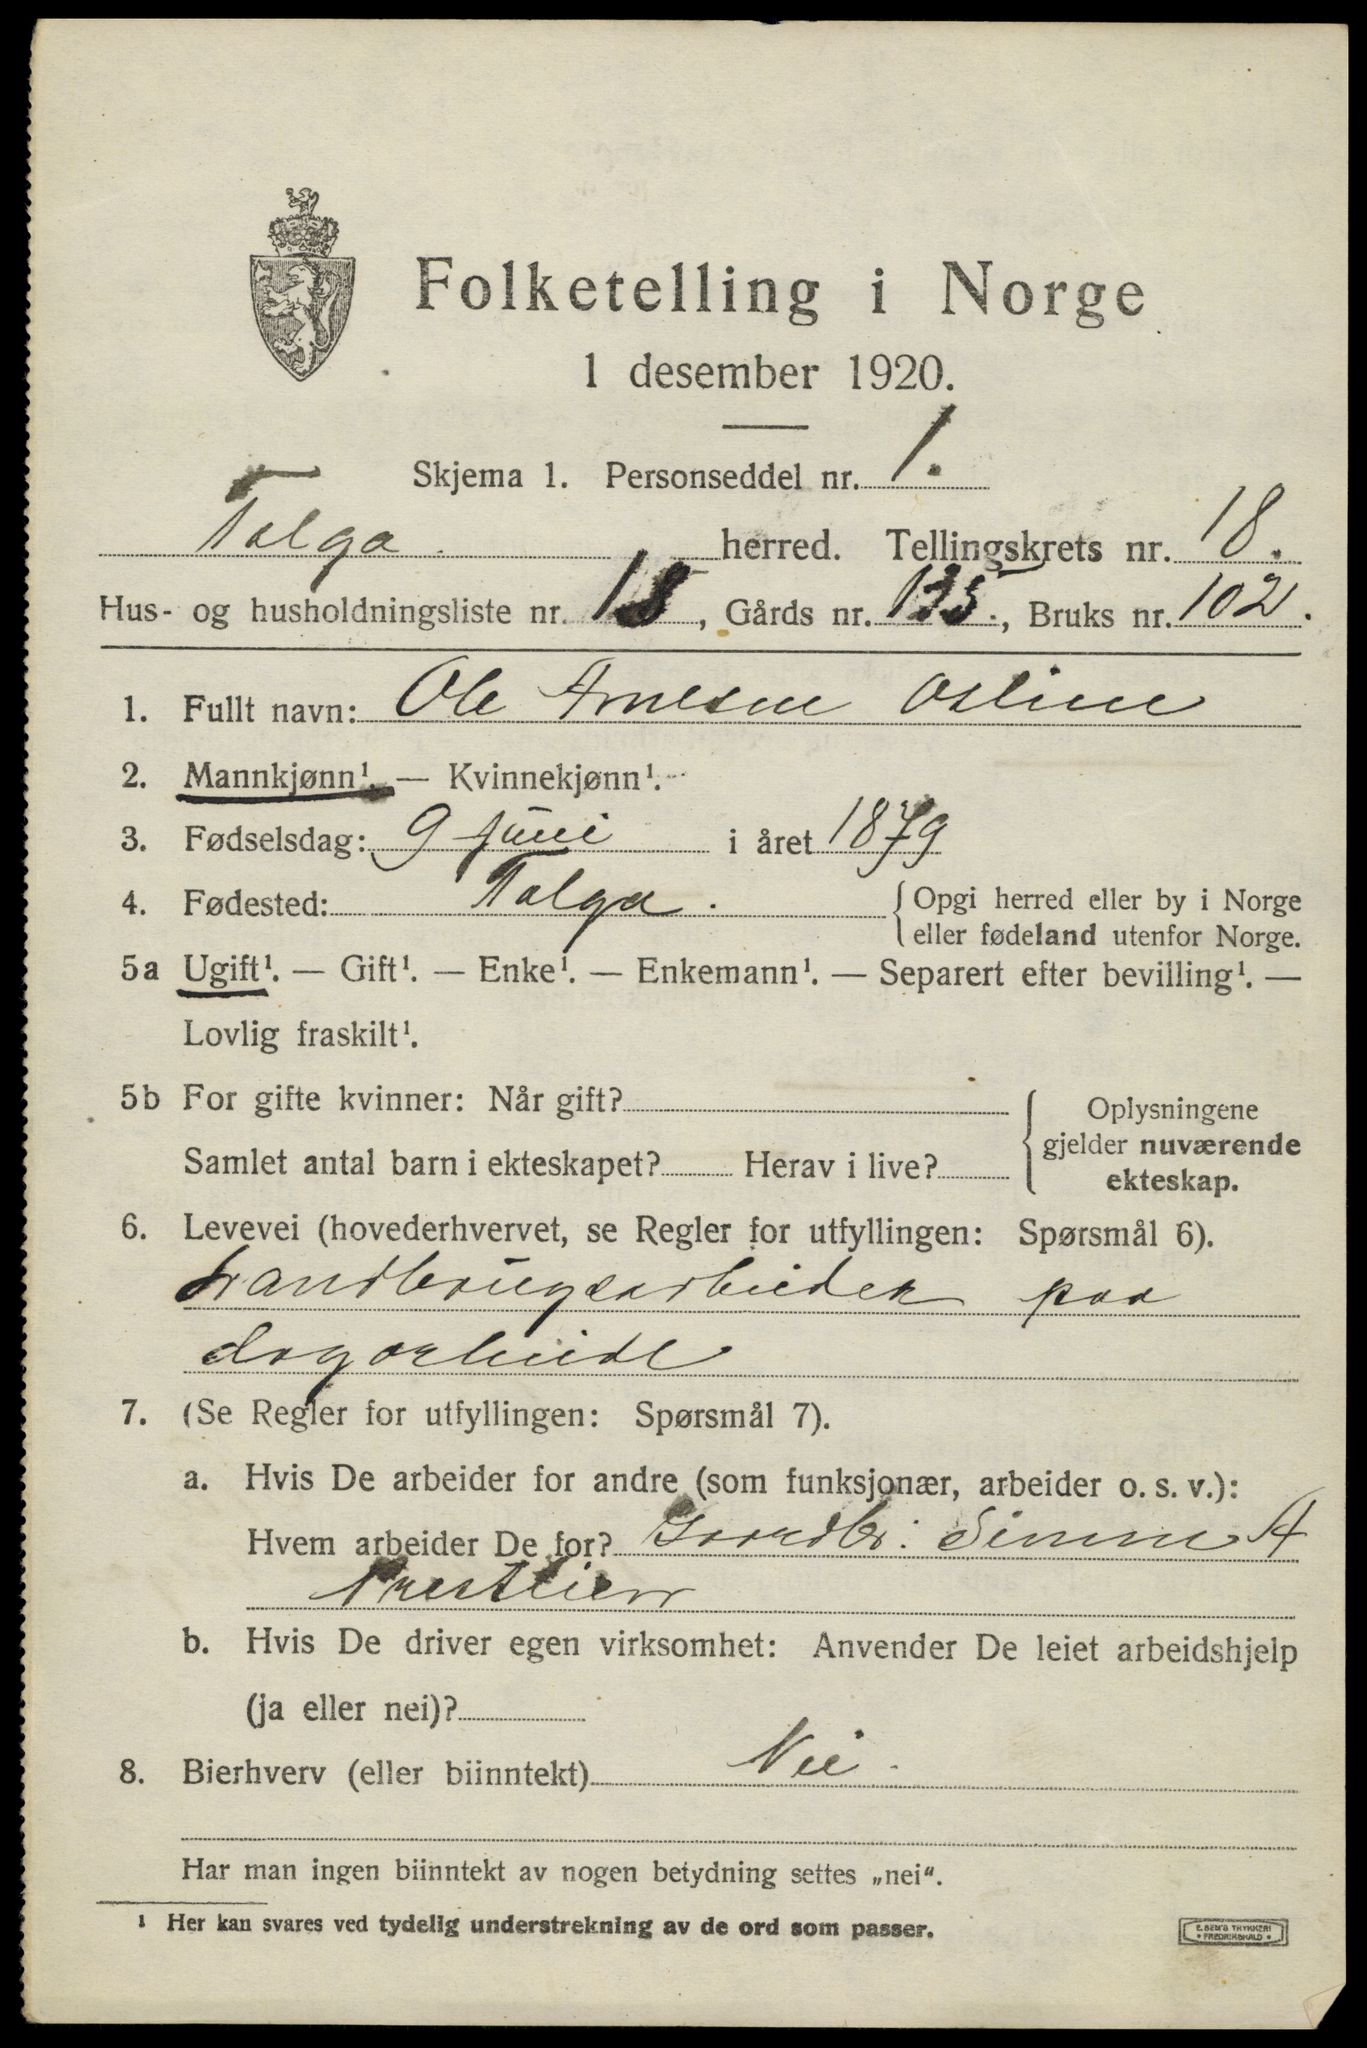 Folketelling i Norge
1 desember 1920.
Skjema 1. Personseddel nr. 1.
Tolga herred. Tellingskrets nr. 18.
Hus- og husholdningsliste nr. 18, Gårds nr. 135, Bruks nr. 102.
1. Fullt navn: Ole Arnesen
2. Mannkjønn¹. — Kvinnekjønn¹.
3. Fødselsdag: 9 Juni i året 1879
4. Fødested: Tolga. { Opgi herred eller by i Norge
eller fødeland utenfor Norge.
5a Ugift¹. — Gift¹. — Enke¹. — Enkemann¹. — Separert efter bevilling¹. —
Lovlig fraskilt¹.
5b For gifte kvinner: Når gift?
Samlet antal barn i ekteskapet? Herav i live?
{ Oplysningene
gjelder nuværende
ekteskap.
6. Levevei (hovederhvervet, se Regler for utfyllingen: Spørsmål 6).
Landbrugsarbeider paa
dagarbeide
7. (Se Regler for utfyllingen: Spørsmål 7).
a. Hvis De arbeider for andre (som funksjonær, arbeider o. s. v.):
Hvem arbeider De for? Gaardbr. Simen A
b. Hvis De driver egen virksomhet: Anvender De leiet arbeidshjelp
(ja eller nei)?
8. Bierhverv (eller biinntekt) Nei.
Har man ingen biinntekt av nogen betydning settes „nei“.
¹ Her kan svares ved tydelig understrekning av de ord som passer.
E. SEM'S TRYKKERI
• FREDRIKSHALD •